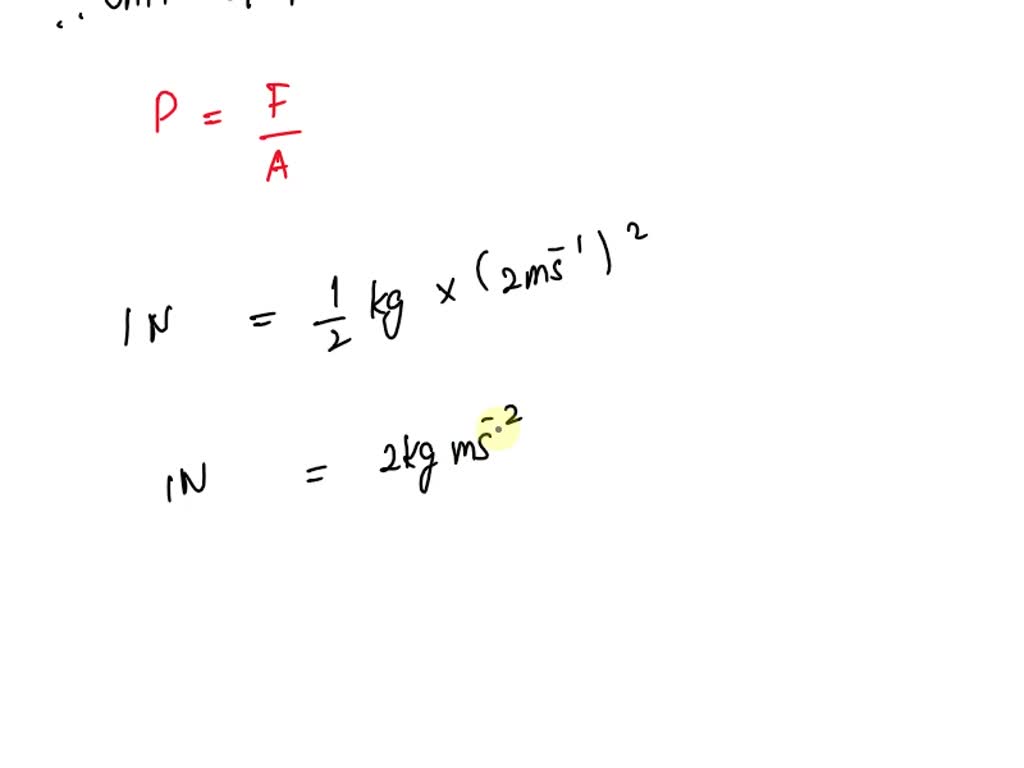 P = F/A
1N = 1/2 kg × (2ms⁻¹)²
1N = 2kg ms⁻²